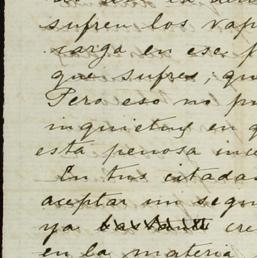 sufren los vap
carga en ese p
que sufres, qu
Pero eso no pu
inquietud en q
esta penosa ince
En tus citadas
aceptar un segu
ya cre
en la materia